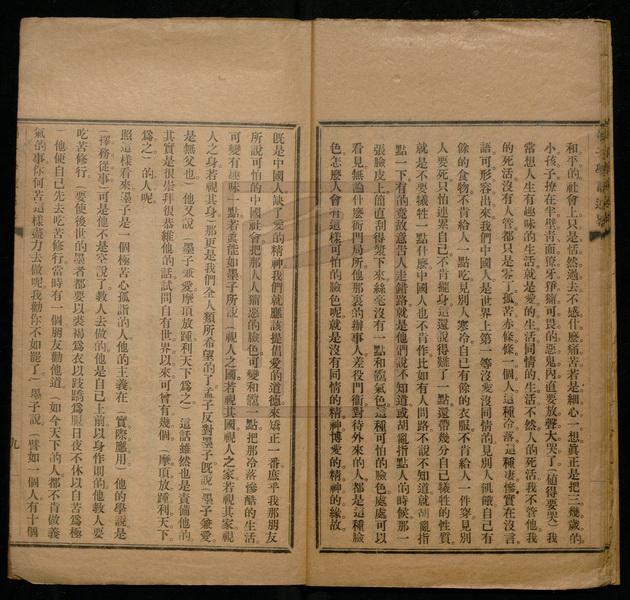 和平的社會上只是恬然過去不感什麼痛苦若是細心一想眞正是把三幾歲的
小孩子撩在半壁青面獠牙猙獰可畏的惡鬼內直要放聲大哭了（値得要哭）我
常想人生有趣味的生活就是愛的生活同情的生活不然人的死活我不管他我
的死活沒有人管都只是零丁孤苦赤條條一個人這種冷落這種凄慘實在沒言
語可形容出來我們中國人是世界上第一等沒愛沒同情的見別人飢餓自己有
餘的食物不肯給人一點吃見別人寒冷自己有餘的衣服不肯給人一件穿見別
人要死只怕連累自己不肯攏身這還說得賤了一點還帶幾分自己犧牲的性質
就是不要犧牲一點什麼中國人也不肯作比如有人問路不說不知道就胡亂指
點一下有的竟故意告人走錯路就是他們說不知道或胡亂指點人的時候那一
張臉皮上簡直刮得漿下來絲毫沒有一點和靄氣色這種可怕的臉色處處可以
看見無論什麼衙門局所他那裏的辦事人差役門衞對待外來的人都是這種臉
色怎麼人會有這樣可怕的臉色呢就是沒有同情的精神博愛的精神的緣故
既是中國人缺了愛的精神我們就應該提倡愛的道德來矯正一番庶乎我那朋友
所說可怕的中國社會把那人人猙惡的臉色可變和靄一點把那冷落慘酷的生活
可變有趣味一點若眞能如墨子所說（視人之國若視其國視人之家若視其家視
人之身若視其身）那更是我們全人類所希望的了孟子反對墨子既說（墨子兼愛
是無父也）他又說（墨子兼愛摩頂放踵利天下爲之）這話雖然也是責備他的
其實是很崇拜很恭維他的話試問自有世界以來可曾有幾個（摩頂放踵利天下
爲之）的人呢
照這樣看來墨子是一個極苦心孤詣的人他的主義在（實際應用）他的學說是
（擇務從事）可是他不是空說了敎人去做的他是自己上前以身作則的他敎人要
吃苦修行（要使後世的墨者都要以裘褐爲衣以跂蹻爲服日夜不休以自苦爲極
）他便自己先去吃苦修行當時有一個朋友勸他道（如今天下的人都不肯做義
氣的事你何苦這樣盡力去做呢我勸你不如罷了）墨子說（譬如一個人有十個
九